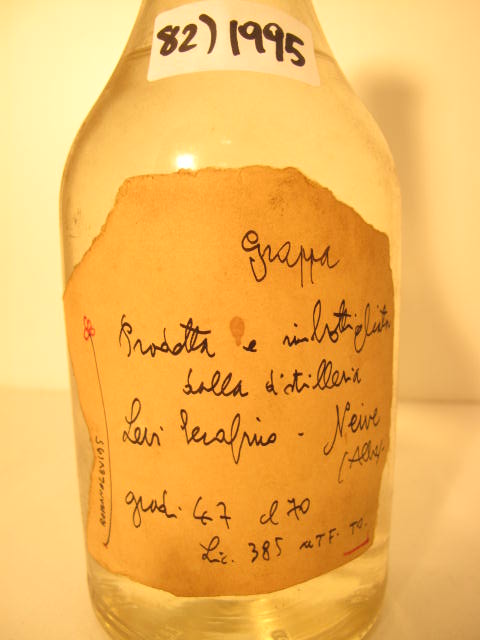 82) 1995
Grappa
Prodotta e imbottigliata
dalla distilleria
Levi Serafino - Neive
(Alba)
gradi 47 cl 70
Lic. 385 UTF. TO.
ROMANOLEVI95